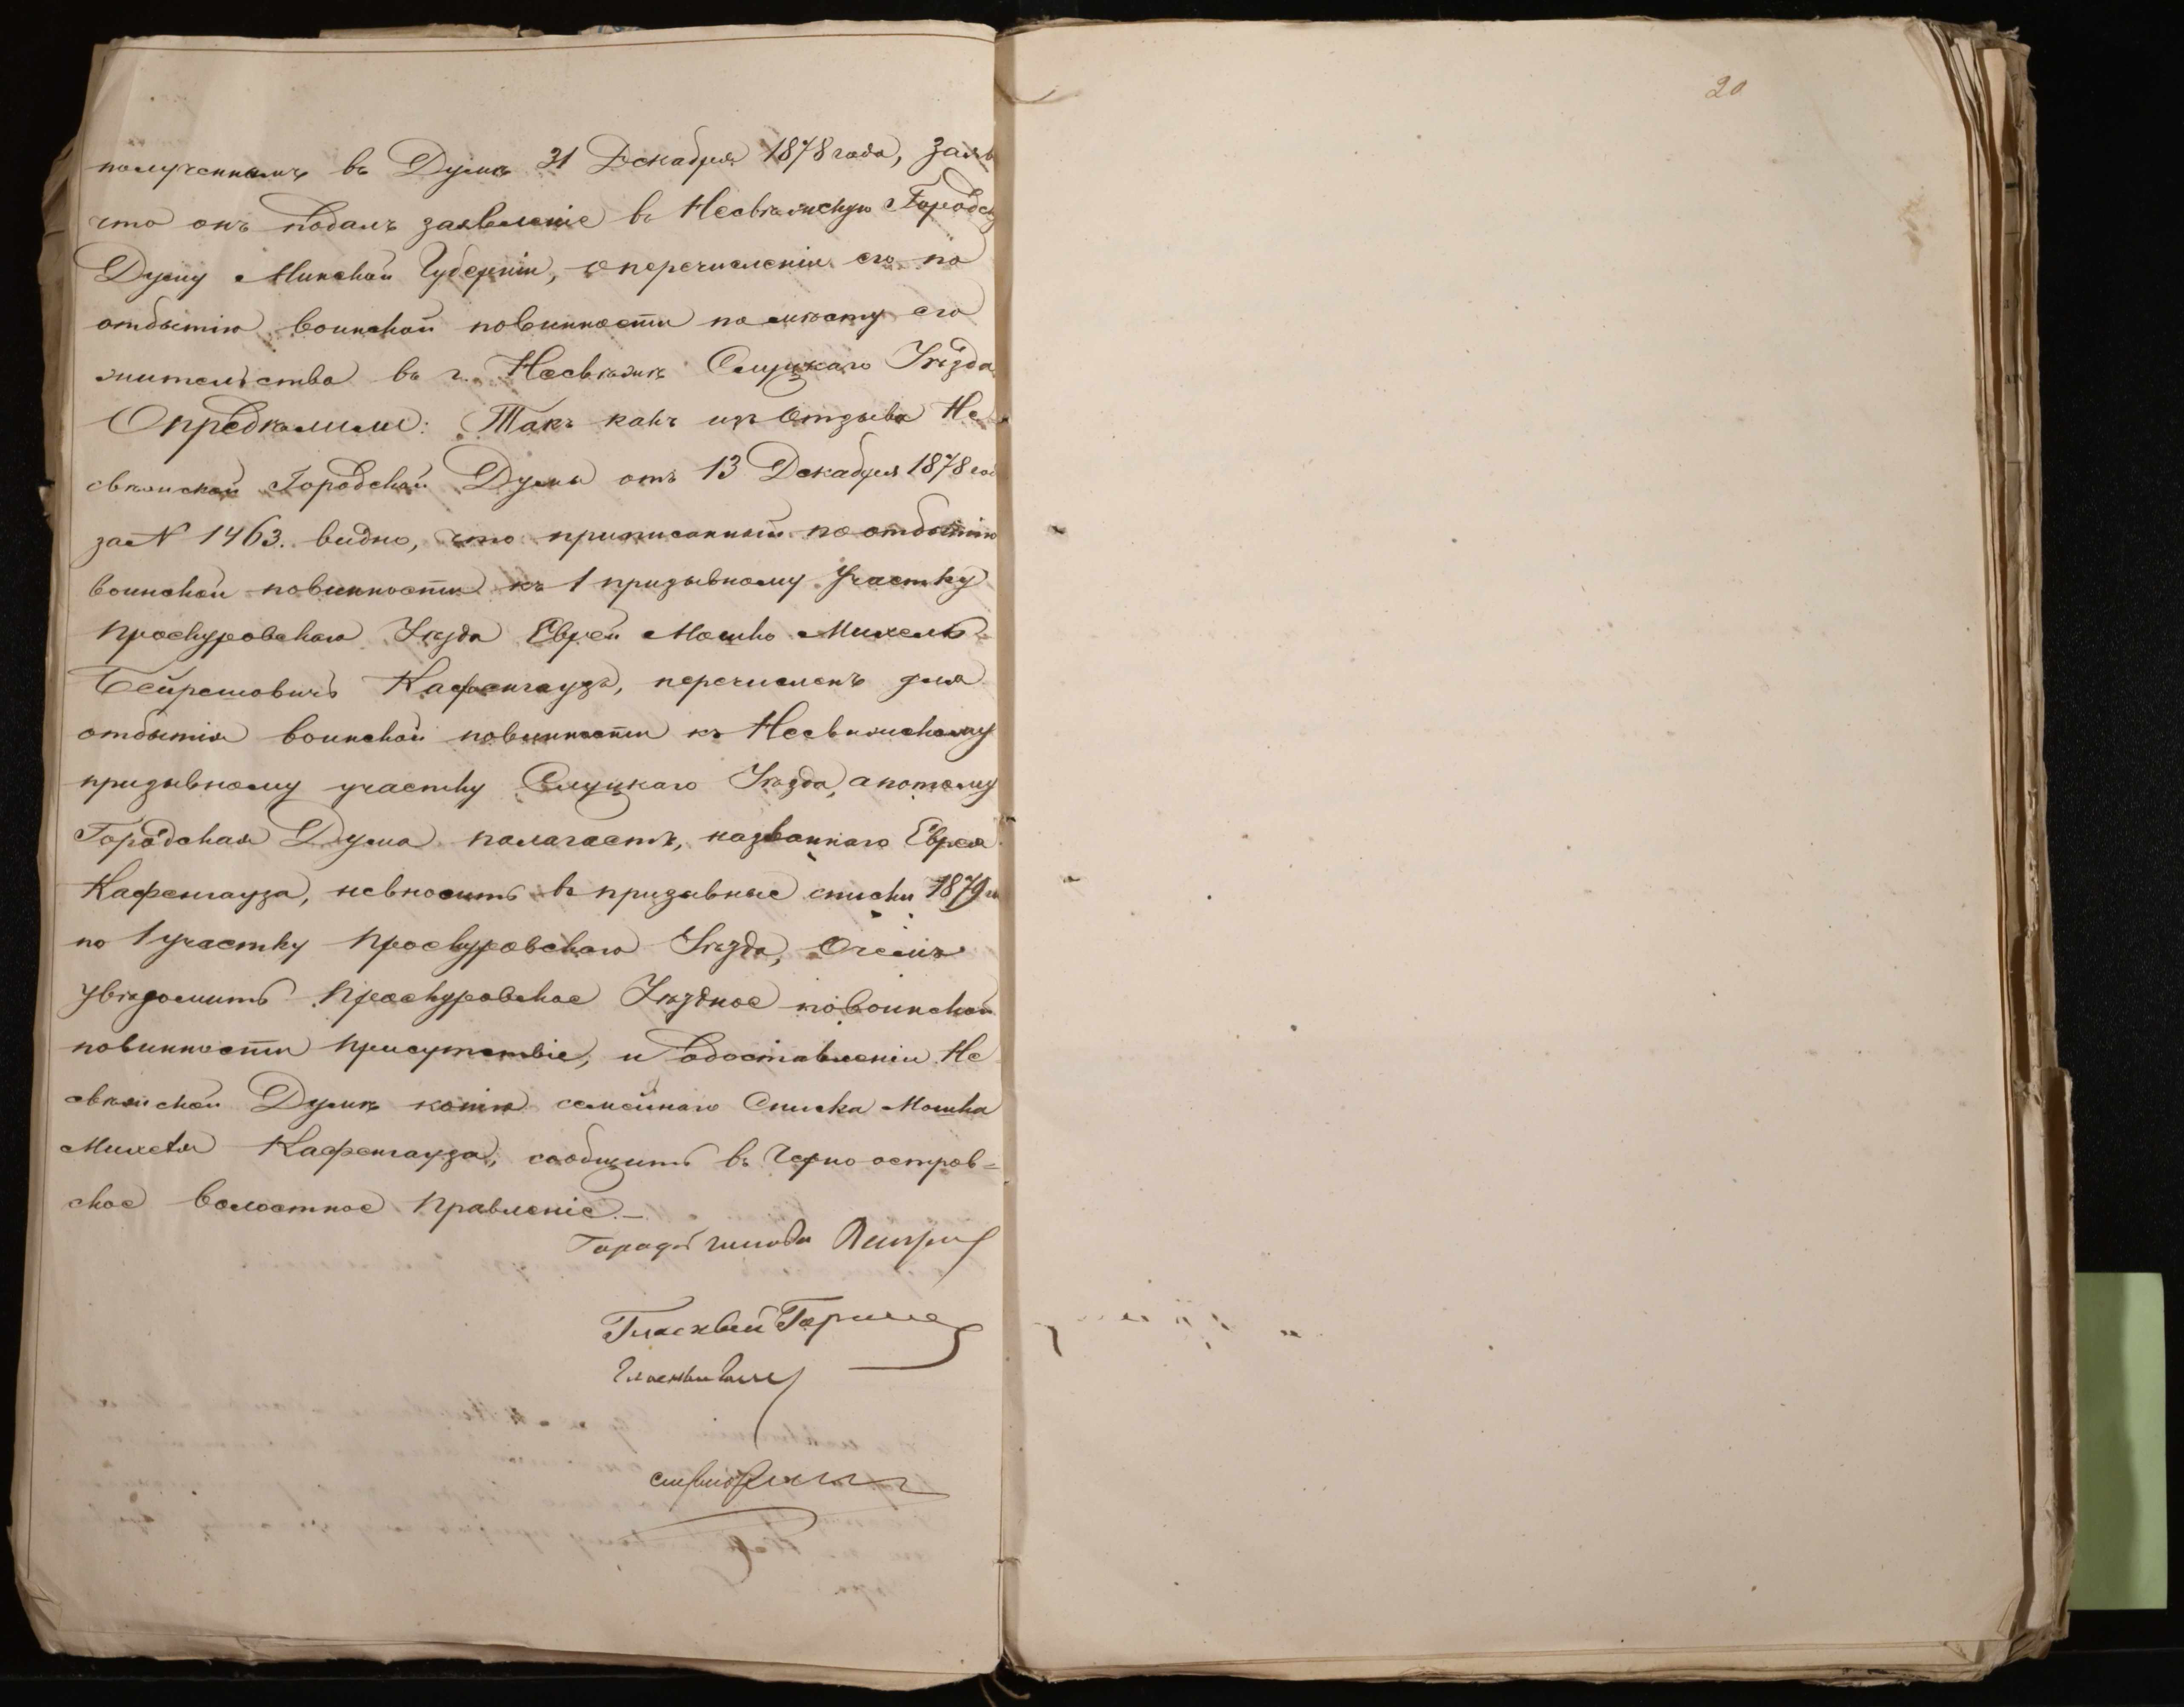 полученнымъ въ Думѣ 31 Декабря 1878 года, заяв
что онъ подалъ заявленіе въ Несвѣжскую Городск
Думу Минской Губерніи, о перечисленіи его по
отбытію воинской повинности по мѣсту его
жительства въ г. Несвѣжѣ Слуцкаго Уѣзда
Опредѣлили: Такъ какъ изъ отзыва Не
свѣжской Городской Думы отъ 13 Декабря 1878 год
за № 1463. видно, что приписанный по отбытію
воинской повинности къ 1 призывному Участку
Проскуровскаго Уѣзда Еврей Мошко Михель
Бейрешовичъ Кафенгаузъ, перечисленъ для
отбытія воинской повинности къ Несвижскому
призывному участку Слуцкаго Уѣзда, а потому
Городская Дума полагаетъ, названнаго Еврея
Кафенгауза, невносить въ призывные списки 1879 г
по 1 участку Проскуровскаго Уѣзда, О чемъ
увѣдомить Проскуровское Уѣздное по воинской
повинности Присутствіе, и о доставленіи Не
свѣжской Думѣ копіи семейнаго Списка Мошка
Михеля Кафенгауза, сообщить въ Черноостров=
ское Волостное Правленіе.—
Городъ голова
Гласный
Гласный
20